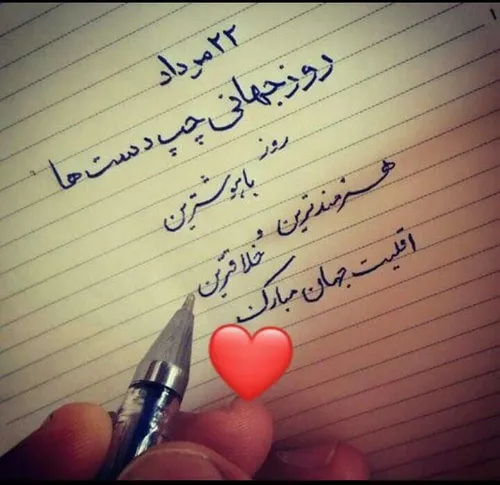 ۲۲ مرداد
روز جهانی چپ دست ها
روز باهوشترین
هنرمندترین و خلاقترین
اقلیت جهان مبارک